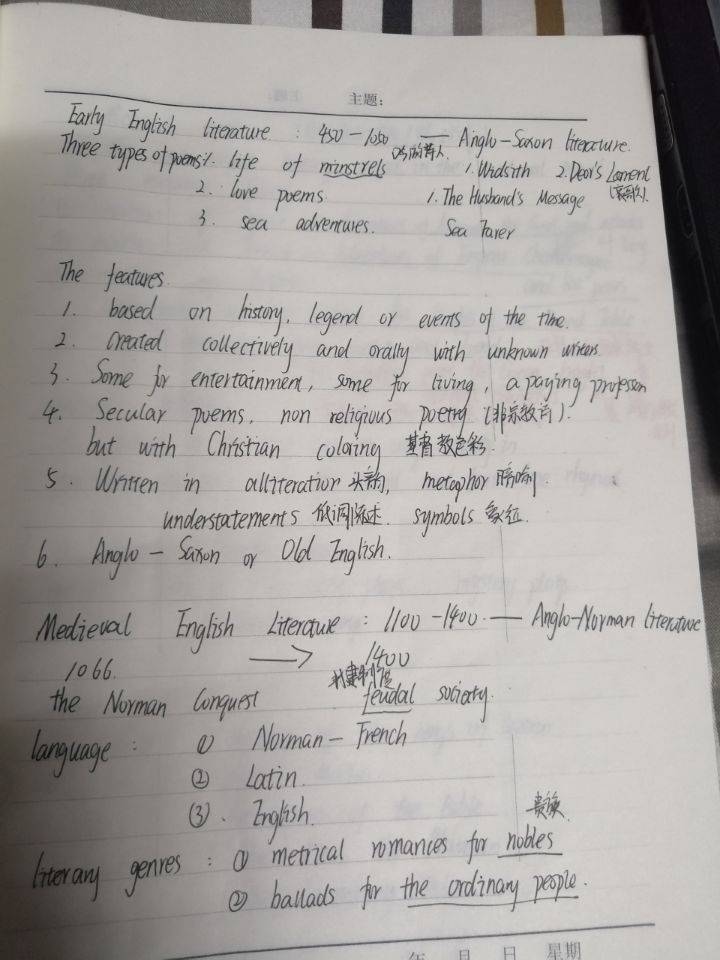 主题:
Early English literature : 450-1050 — Anglo-Saxon literature.
Three types of poems: 1. life of minstrels 1. Widsith 2. Deor's Lament
2. love poems 1. The Husband's Message
3. sea adventures. Sea Farer
The features.
1. based on history, legend or events of the time.
2. created collectively and orally with unknown writers.
3. Some for entertainment, some for living, a paying profession
4. Secular poems, non religious poetry (非宗教诗).
but with Christian coloring 基督教色彩.
5. Written in alliteration 头韵, metaphor 暗喻
understatements 低调陈述. symbols 象征.
6. Anglo-Saxon or Old English.
Medieval English Literature : 1100-1400. — Anglo-Norman literature
1066. → 1400
封建制度
the Norman Conquest feudal society.
language : ① Norman-French
② Latin.
③. English.
贵族.
literary genres : ① metrical romances for nobles
② ballads for the ordinary people.
年 月 日 星期